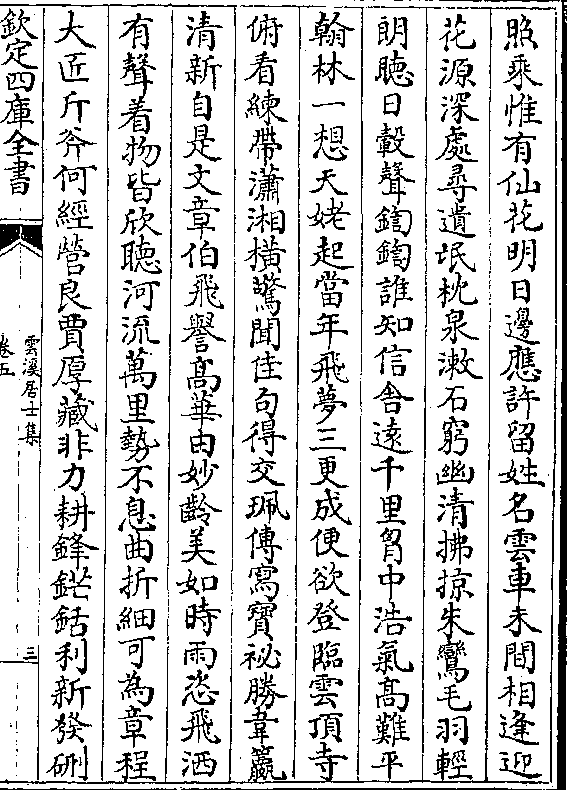 照乘惟有仙花明日邊應許留姓名雲車未間相逢迎
花源深處尋遺氓枕泉漱石窮幽清拂掠朱鸞毛羽輕
朗聽日轂聲鍧鍧誰知信舍遠千里胷中浩氣髙難平
翰林一想天姥起當年飛夢三更成便欲登臨雲頂寺
俯看練帶瀟湘橫驚聞佳句得交珮傳寫寶祕勝韋籯
清新自是文章伯飛譽髙華由妙齡美如時雨恣飛洒
有聲着物皆欣聽河流萬里勢不息曲折細可為章程
大匠斤斧何經營良賈厚藏非力耕鋒鋩銛利新發硎
欽定四庫全書
雲溪居士集
卷五
三